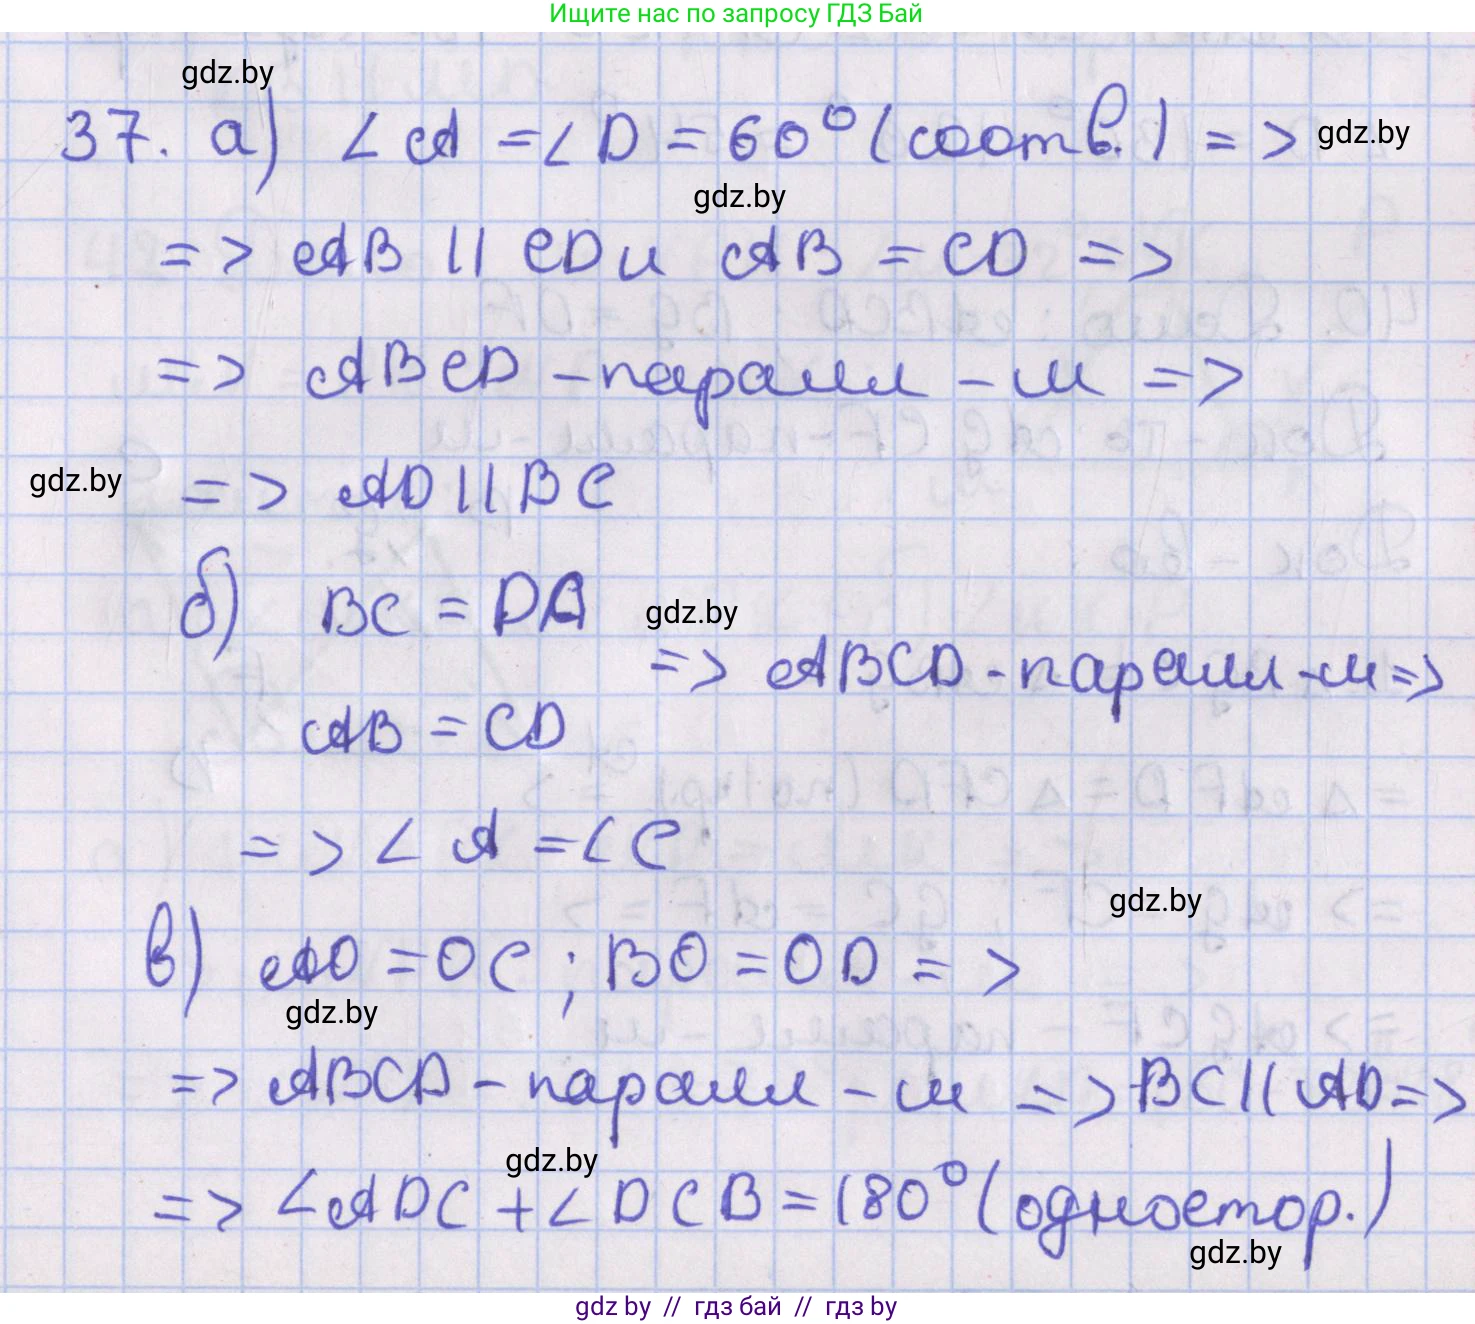 Ищите нас по запросу ГДЗ Бай
gdz.by
37. а) ∠A = ∠D = 60° (соотв.) =>
gdz.by
gdz.by
=> AB || CD и AB = CD =>
=> ABCD - паралл - м =>
gdz.by
=> AD || BC
б) BC = DA
gdz.by
=> ABCD - паралл - м =>
AB = CD
=> ∠A = ∠C
gdz.by
в) AO = OC ; BO = OD =>
gdz.by
=> ABCD - паралл - м => BC || AD =>
gdz.by
=> ∠ADC + ∠DCB = 180° (одностор.)
gdz.by
gdz by // гдз бай // гдз by